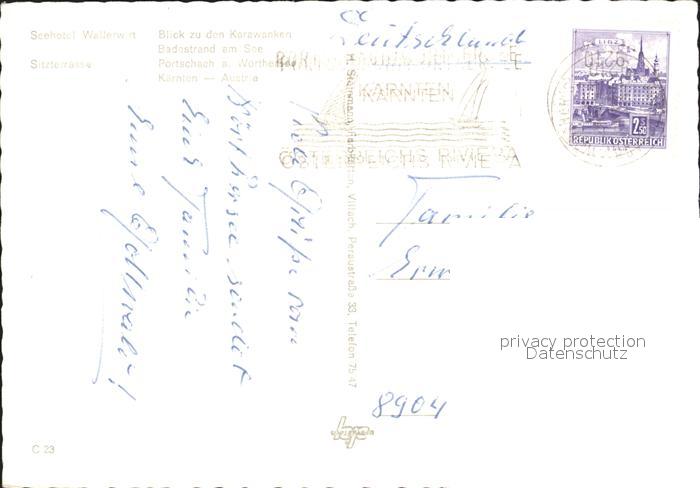 Seehotel Wallerwirt
Sitzterrasse
Blick zu den Karawanken
Badestrand am See
Pörtschach a. Worther See
Kärnten — Austria
Deutschland
KÄRNTEN
ÖSTERREICHS RIVIERA
LINZ
2.50
REPUBLIK ÖSTERREICH
Viele Grüße vom
Wörthersee sendet
Euch Familie
Familie
Erw
8904
Villach, Peraustraße 33, Telefon 75 47
privacy protection
Datenschutz
C 23